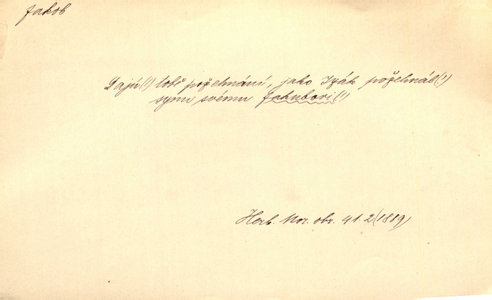 Jakob
Dajú(!) tobě požehnání, jako Izák požehnal(!)
synu svému Jakubovi(!)
Herb. Mor. obr. 41. 2 (1889)